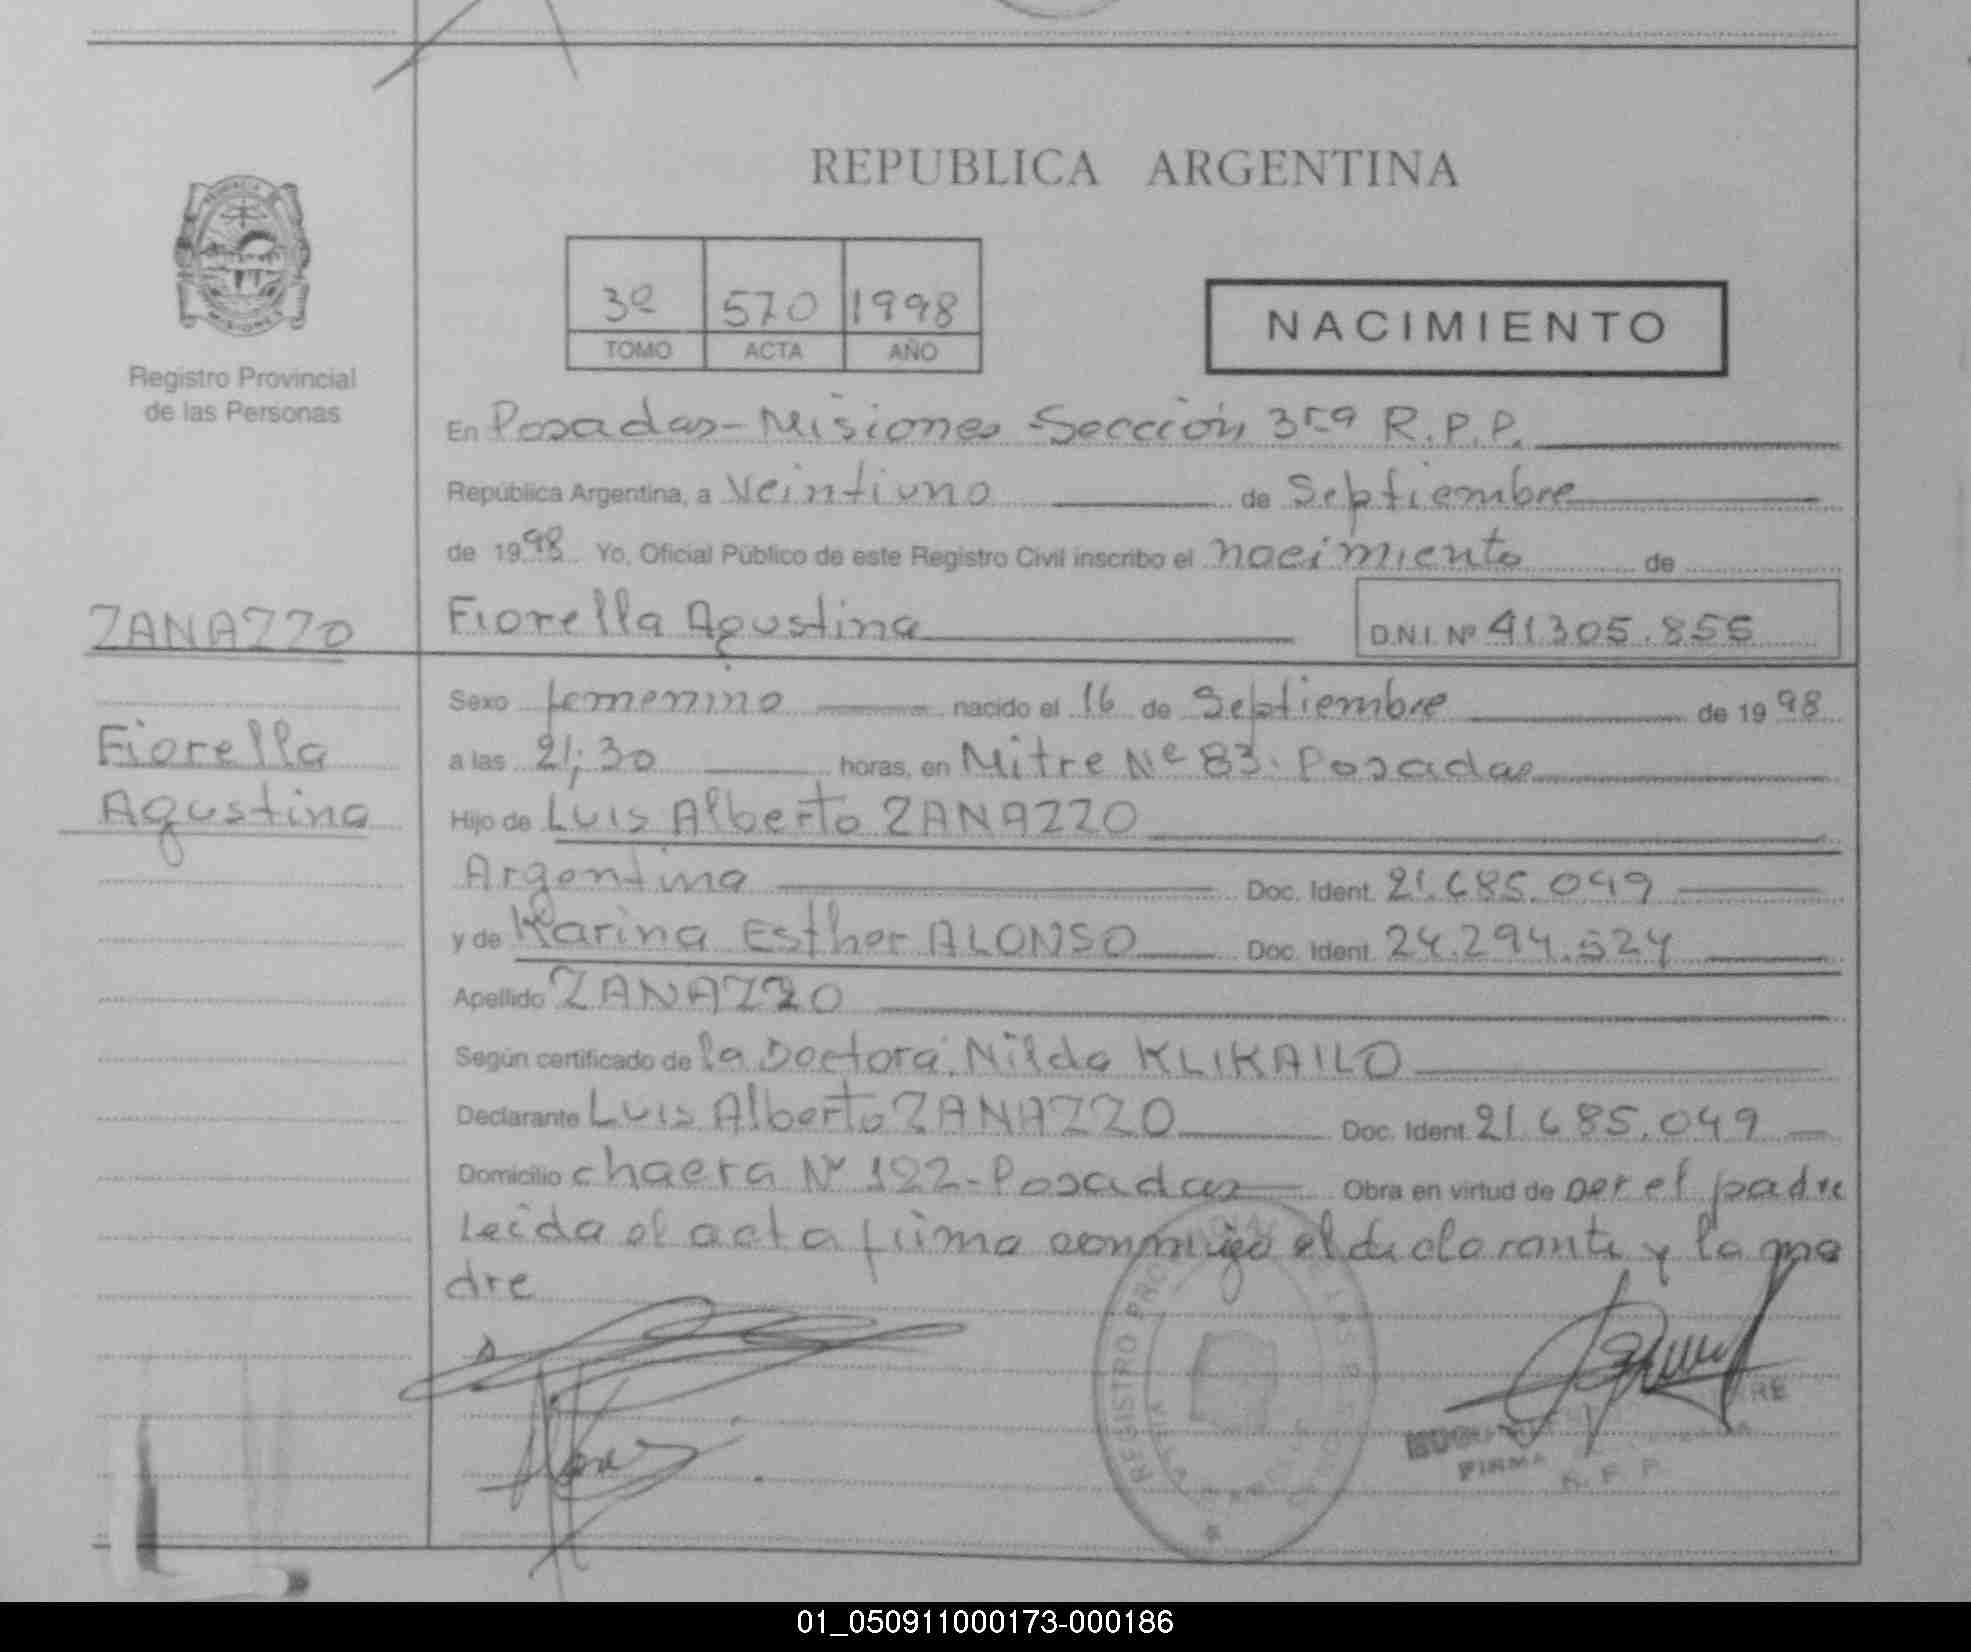 REPUBLICA ARGENTINA
3º 570 1998
TOMO ACTA AÑO
NACIMIENTO
MISIONES
Registro Provincial
de las Personas
En Posadas-Misiones Sección 3ra R.P.P.
República Argentina, a Veintiuno de Septiembre
de 1998 Yo, Oficial Público de este Registro Civil inscribo el nacimiento de
ZANAZZO
Fiorella Agustina
D.N.I. Nº 41305.855
Sexo femenino nacido el 16 de Septiembre de 1998
Fiorella
Agustina
a las 21;30 horas, en Mitre Nº 83. Posadas
Hijo de Luis Alberto ZANAZZO
Argentina Doc. Ident. 21.685.049
y de Karina Esther ALONSO Doc. Ident. 24.294.524
Apellido ZANAZZO
Según certificado de la Doctora. Nilda KLIKAILO
Declarante Luis Alberto ZANAZZO Doc. Ident. 21.685.049
Domicilio chacra Nº 122-Posadas Obra en virtud de ser el padre
Leida el acta firma conmigo el declarante y la ma
dre
REGISTRO
FIRMA
R. P. P.
01_050911000173-000186